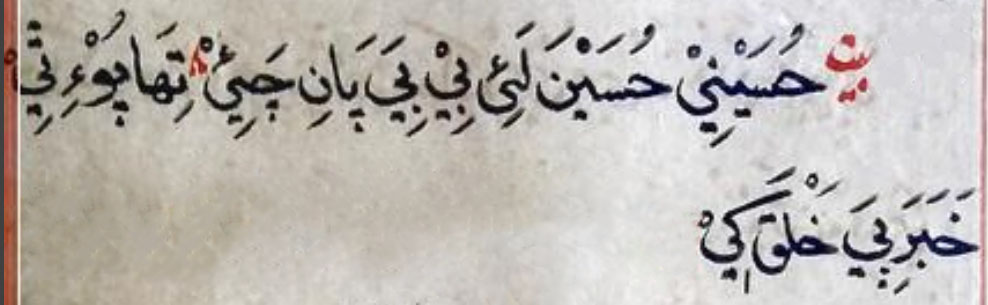 بيت حُسَيْنِيْ حُسَيْنَ لَئِ بِيْ بِيَ پَانِ چَيِئْ تِهَا پُوْءِ تِيْ
خَبَرَ پِيَ خَلْقَ کِيْ